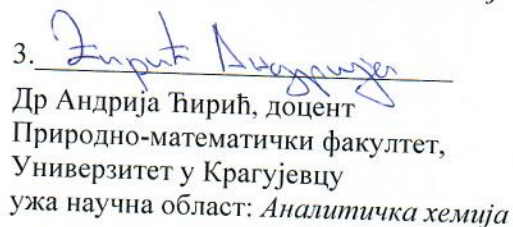 3. Ћирић Андрија
Др Андрија Ћирић, доцент
Природно-математички факултет,
Универзитет у Крагујевцу
ужа научна област: Аналитичка хемија